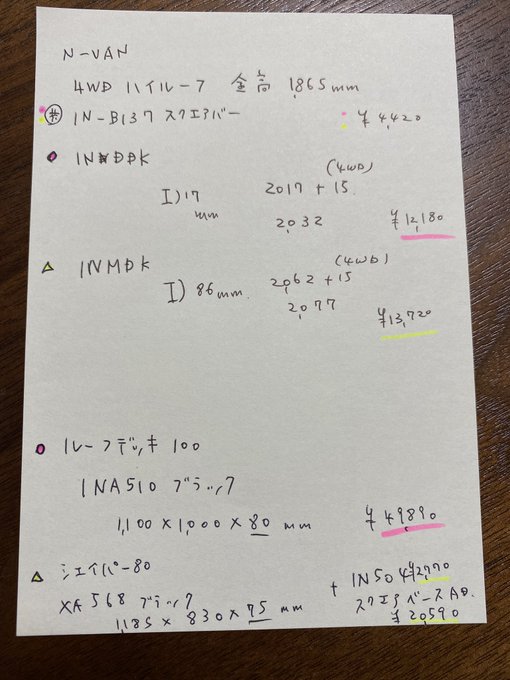 N-VAN
4WD ハイルーフ 全高 1,865mm
※ IN-B137 スクエアバー ¥4,420
INXDDK
(4WD)
I)17mm 2017+15
2,032 ¥12,180
△ INMDK
(4WD)
I) 86mm 2,062+15
2,077
¥13,720
ルーフデッキ 100
INA510 ブラック
1,100×1,000×80 mm ¥49890
△ シェイパー80
XA568 ブラック
1,185×830×75 mm
+ IN504 ¥2,970
スクエアベースAD.
¥20,590